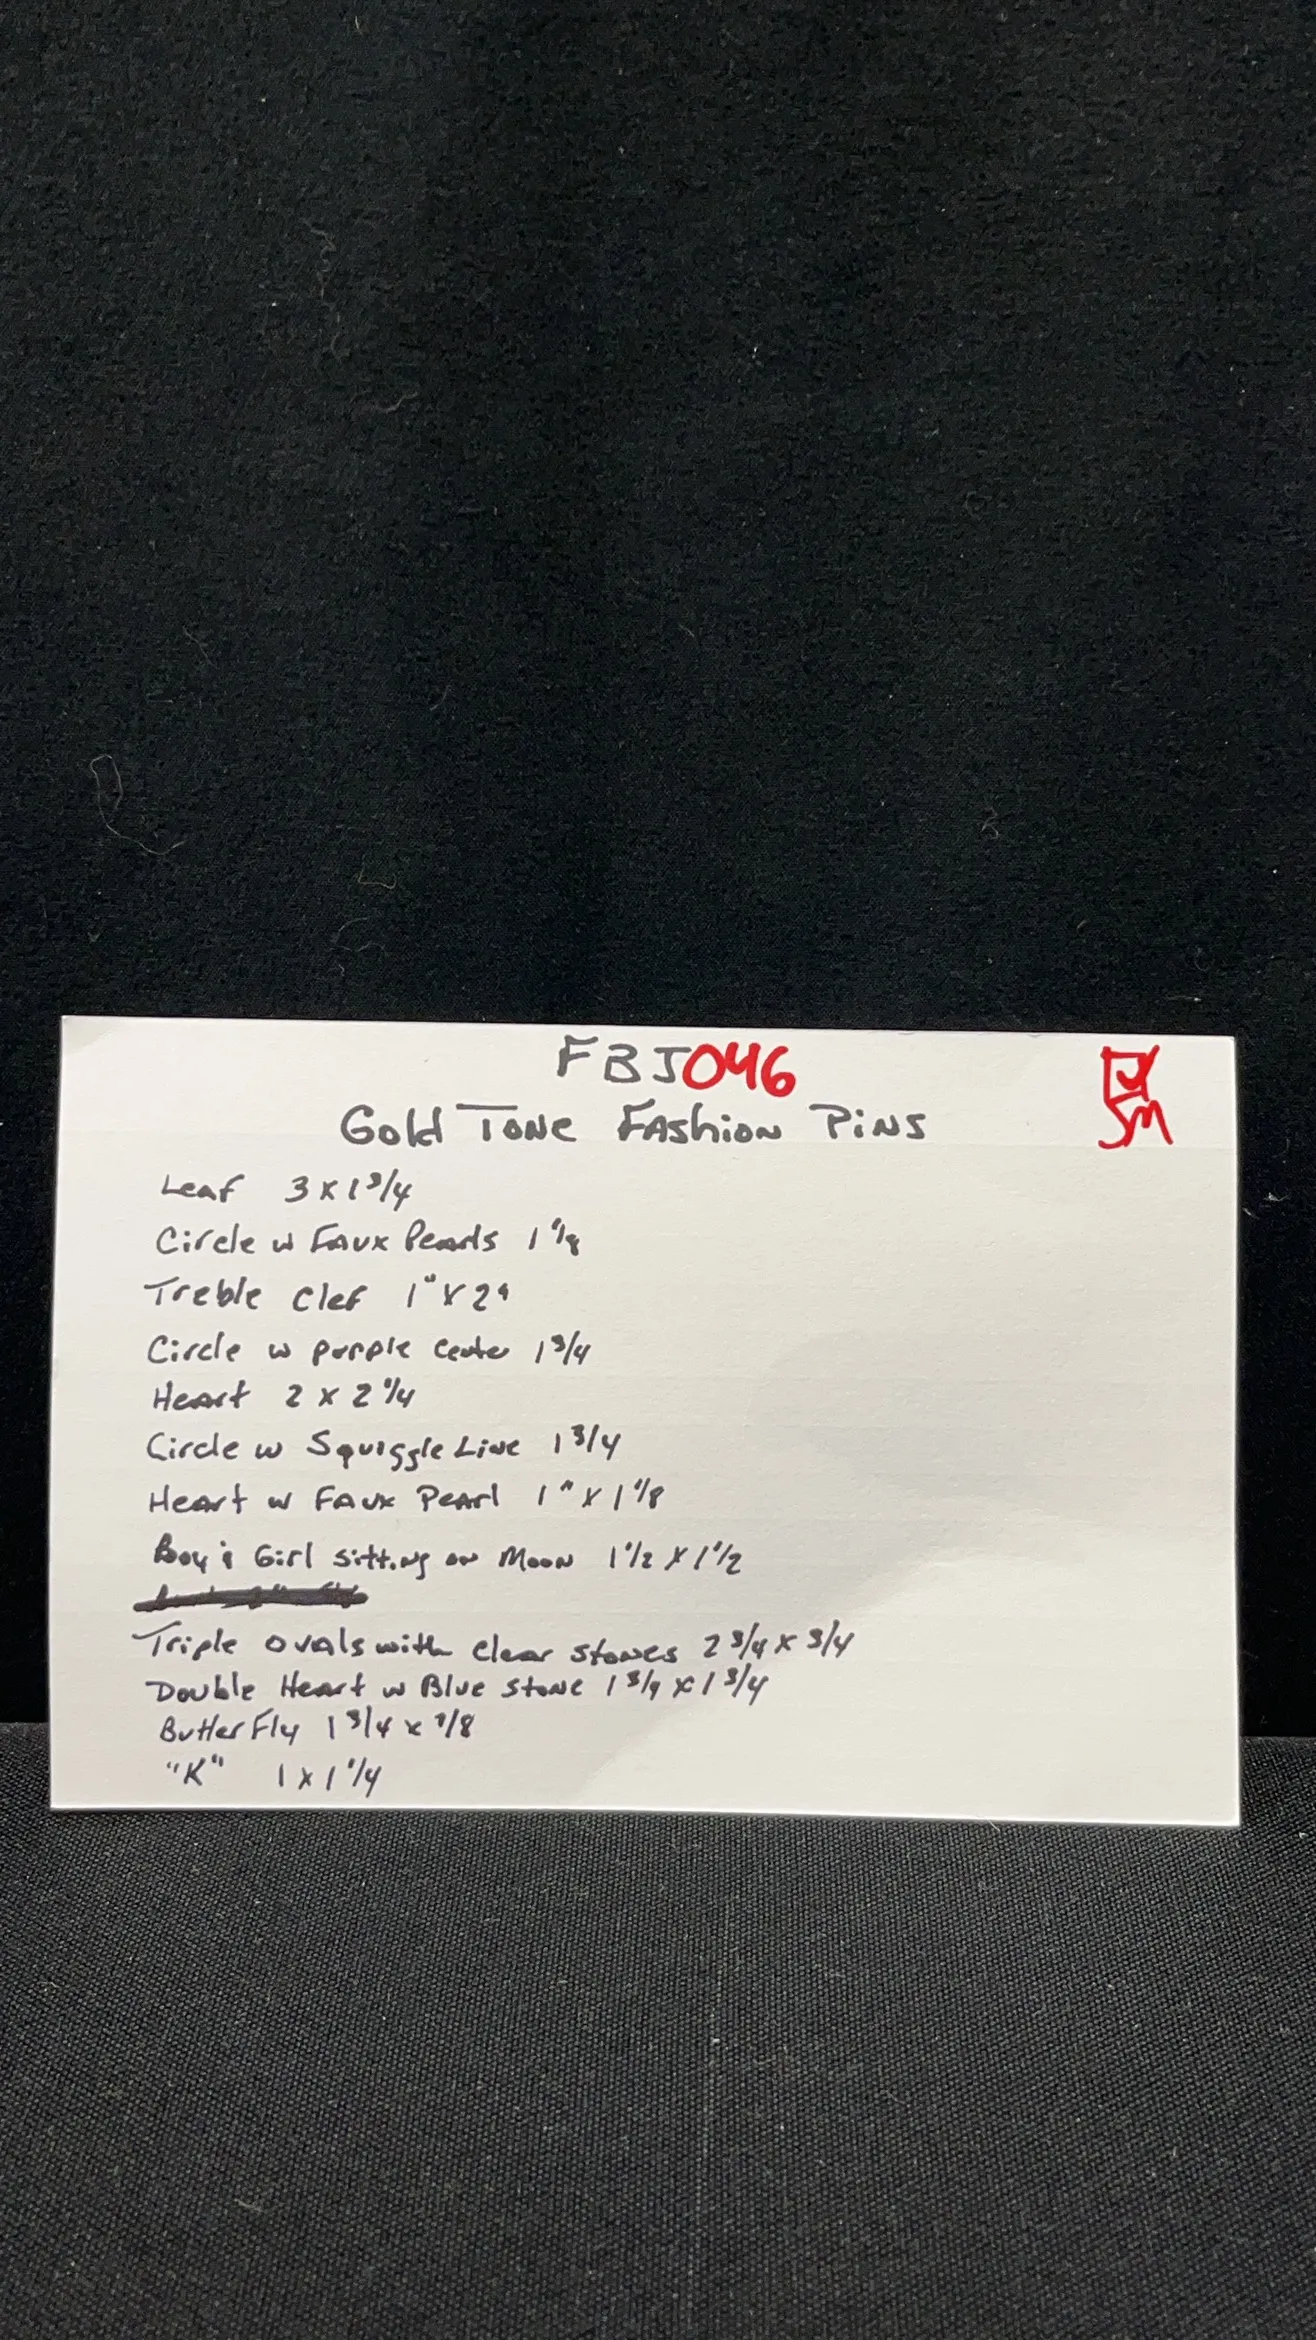 FBJ046
Gold Tone Fashion Pins
Leaf 3 x 1 3/4
Circle w Faux Pearls 1 1/8
Treble Clef 1" x 2"
Circle w purple Center 1 3/4
Heart 2 x 2 1/4
Circle w Squiggle Line 1 3/4
Heart w Faux Pearl 1" x 1 1/8
Boy & Girl sitting on Moon 1 1/2 x 1 1/2
Triple ovals with clear stones 2 3/4 x 3/4
Double Heart w Blue stone 1 3/4 x 1 3/4
Butterfly 1 3/4 x 7/8
"K" 1 x 1 1/4
SM